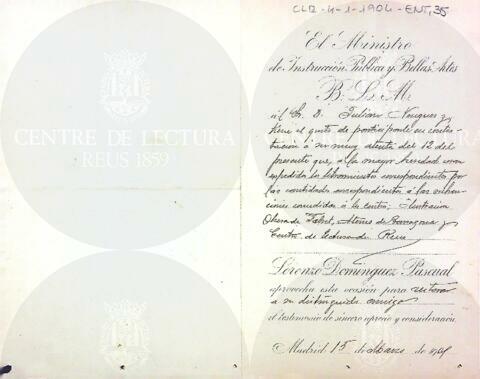 CLR-4-1-1904-ENT,35
El Ministro
de Instrucción Pública y Bellas Artes
B. L. M.
al Sr. D. Julian Nougues y
tiene el gusto de participarle en contes-
tacion a su muy atenta del 12 del
presente que, a la mayor brevedad seran
expedidos los libramientos correspondientes por
las cantidades correspondientes a las subven-
ciones concedidas a los centros: Ilustracion
Obrera de Valls, Ateneo de Tarragona y
Centro de Lectura de Reus
Lorenzo Domínguez Pascual
aprovecha esta ocasión para reiterar
a su distinguido amigo
el testimonio de sincero aprecio y consideración.
Madrid 15 de Marzo de 1904
CENTRE DE LECTURA
REUS 1859